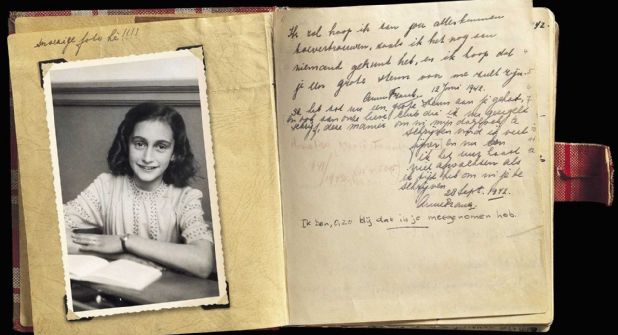 Snoezige foto hè!!!!
42.
Ik zal hoop ik aan jou alles kunnen
toevertrouwen, zoals ik het nog aan
niemand gekund heb, en ik hoop dat
je een grote steun voor me zult zijn.
Anne Frank. 12 Juni 1942.
Ik heb tot nu een grote steun aan je gehad,
en ook aan onze lieve club die ik nu geregeld
schrijf, deze manier om in mijn dagboek
te schrijven vind ik veel
fijner en nu kan
ik het uur haast
niet afwachten als
ik tijd heb om in je te
schrijven.
28 Sept. 1942.
Anne Frank.
Ik ben, o, zo blij dat ik je meegenomen heb.